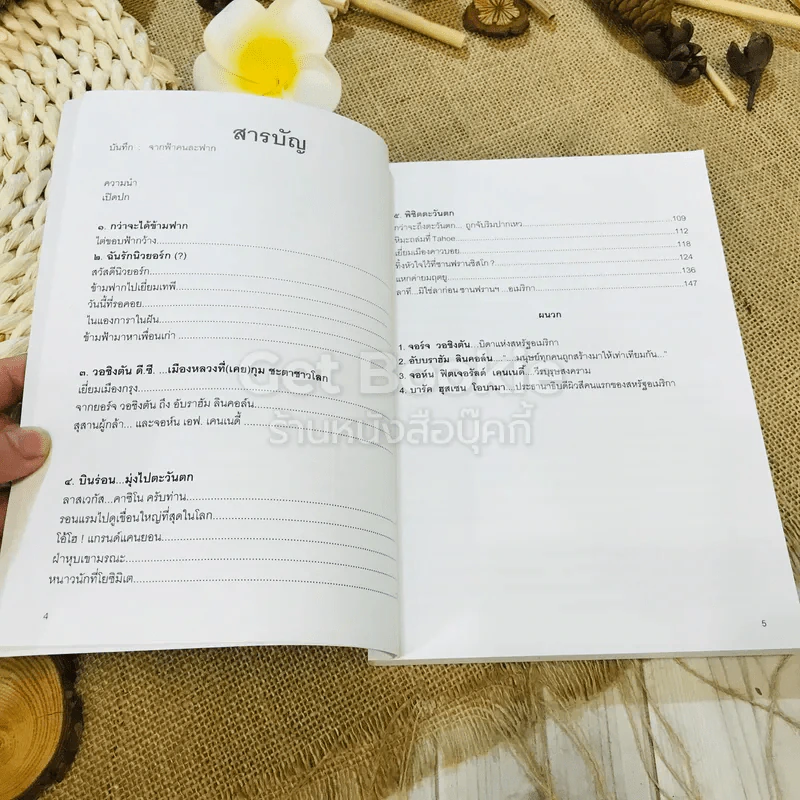 สารบัญ
บันทึก : จากฟ้าคนละฟาก
ความนำ
เปิดปก
๑. กว่าจะได้ข้ามฟาก
ไต่ขอบฟ้ากว้าง
๒. ฉันรักนิวยอร์ก (?)
สวัสดีนิวยอร์ก
ข้ามฟากไปเยี่ยมเทพี
วันนี้ที่รอคอย
ไนแองการาในฝัน
ข้ามฟ้ามาหาเพื่อนเก่า
๓. วอชิงตัน ดี.ซี. ...เมืองหลวงที่(เคย)กุม ชะตาชาวโลก
เยี่ยมเมืองกรุง
จากยอร์จ วอชิงตัน ถึง อับราฮัม ลินคอล์น
สุสานผู้กล้า... และจอห์น เอฟ. เคนเนดี้
๔. บินร่อน...มุ่งไปตะวันตก
ลาสเวกัส...คาซิโน ครับท่าน
รอนแรมไปดูเขื่อนใหญ่ที่สุดในโลก
โอ้โฮ ! แกรนด์แคนยอน
ฝ่าหุบเขามรณะ
หนาวนักที่โยซิมิเต
4
๕. พิชิตตะวันตก
กว่าจะถึงตะวันตก... ถูกจับริมปากเหว 109
หิมะถล่มที่ Tahoe 112
เยี่ยมเมืองคาวบอย 118
ทิ้งหัวใจไว้ที่ซานฟรานซิสโก ? 124
แหกค่ายมฤตยู 136
ลาที...มิใช่ลาก่อน ซานฟรานฯ ...อเมริกา 147
ผนวก
1. จอร์จ วอชิงตัน...บิดาแห่งสหรัฐอเมริกา
2. อับบราฮัม ลินคอล์น...“...มนุษย์ทุกคนถูกสร้างมาให้เท่าเทียมกัน...”
3. จอห์น ฟิตเจอรัลด์ เคนเนดี้...วีรบุรุษสงคราม
4. บารัค ฮุสเซน โอบามา...ประธานาธิบดีผิวสีคนแรกของสหรัฐอเมริกา
5
ร้านหนังสือบุ๊คกี้